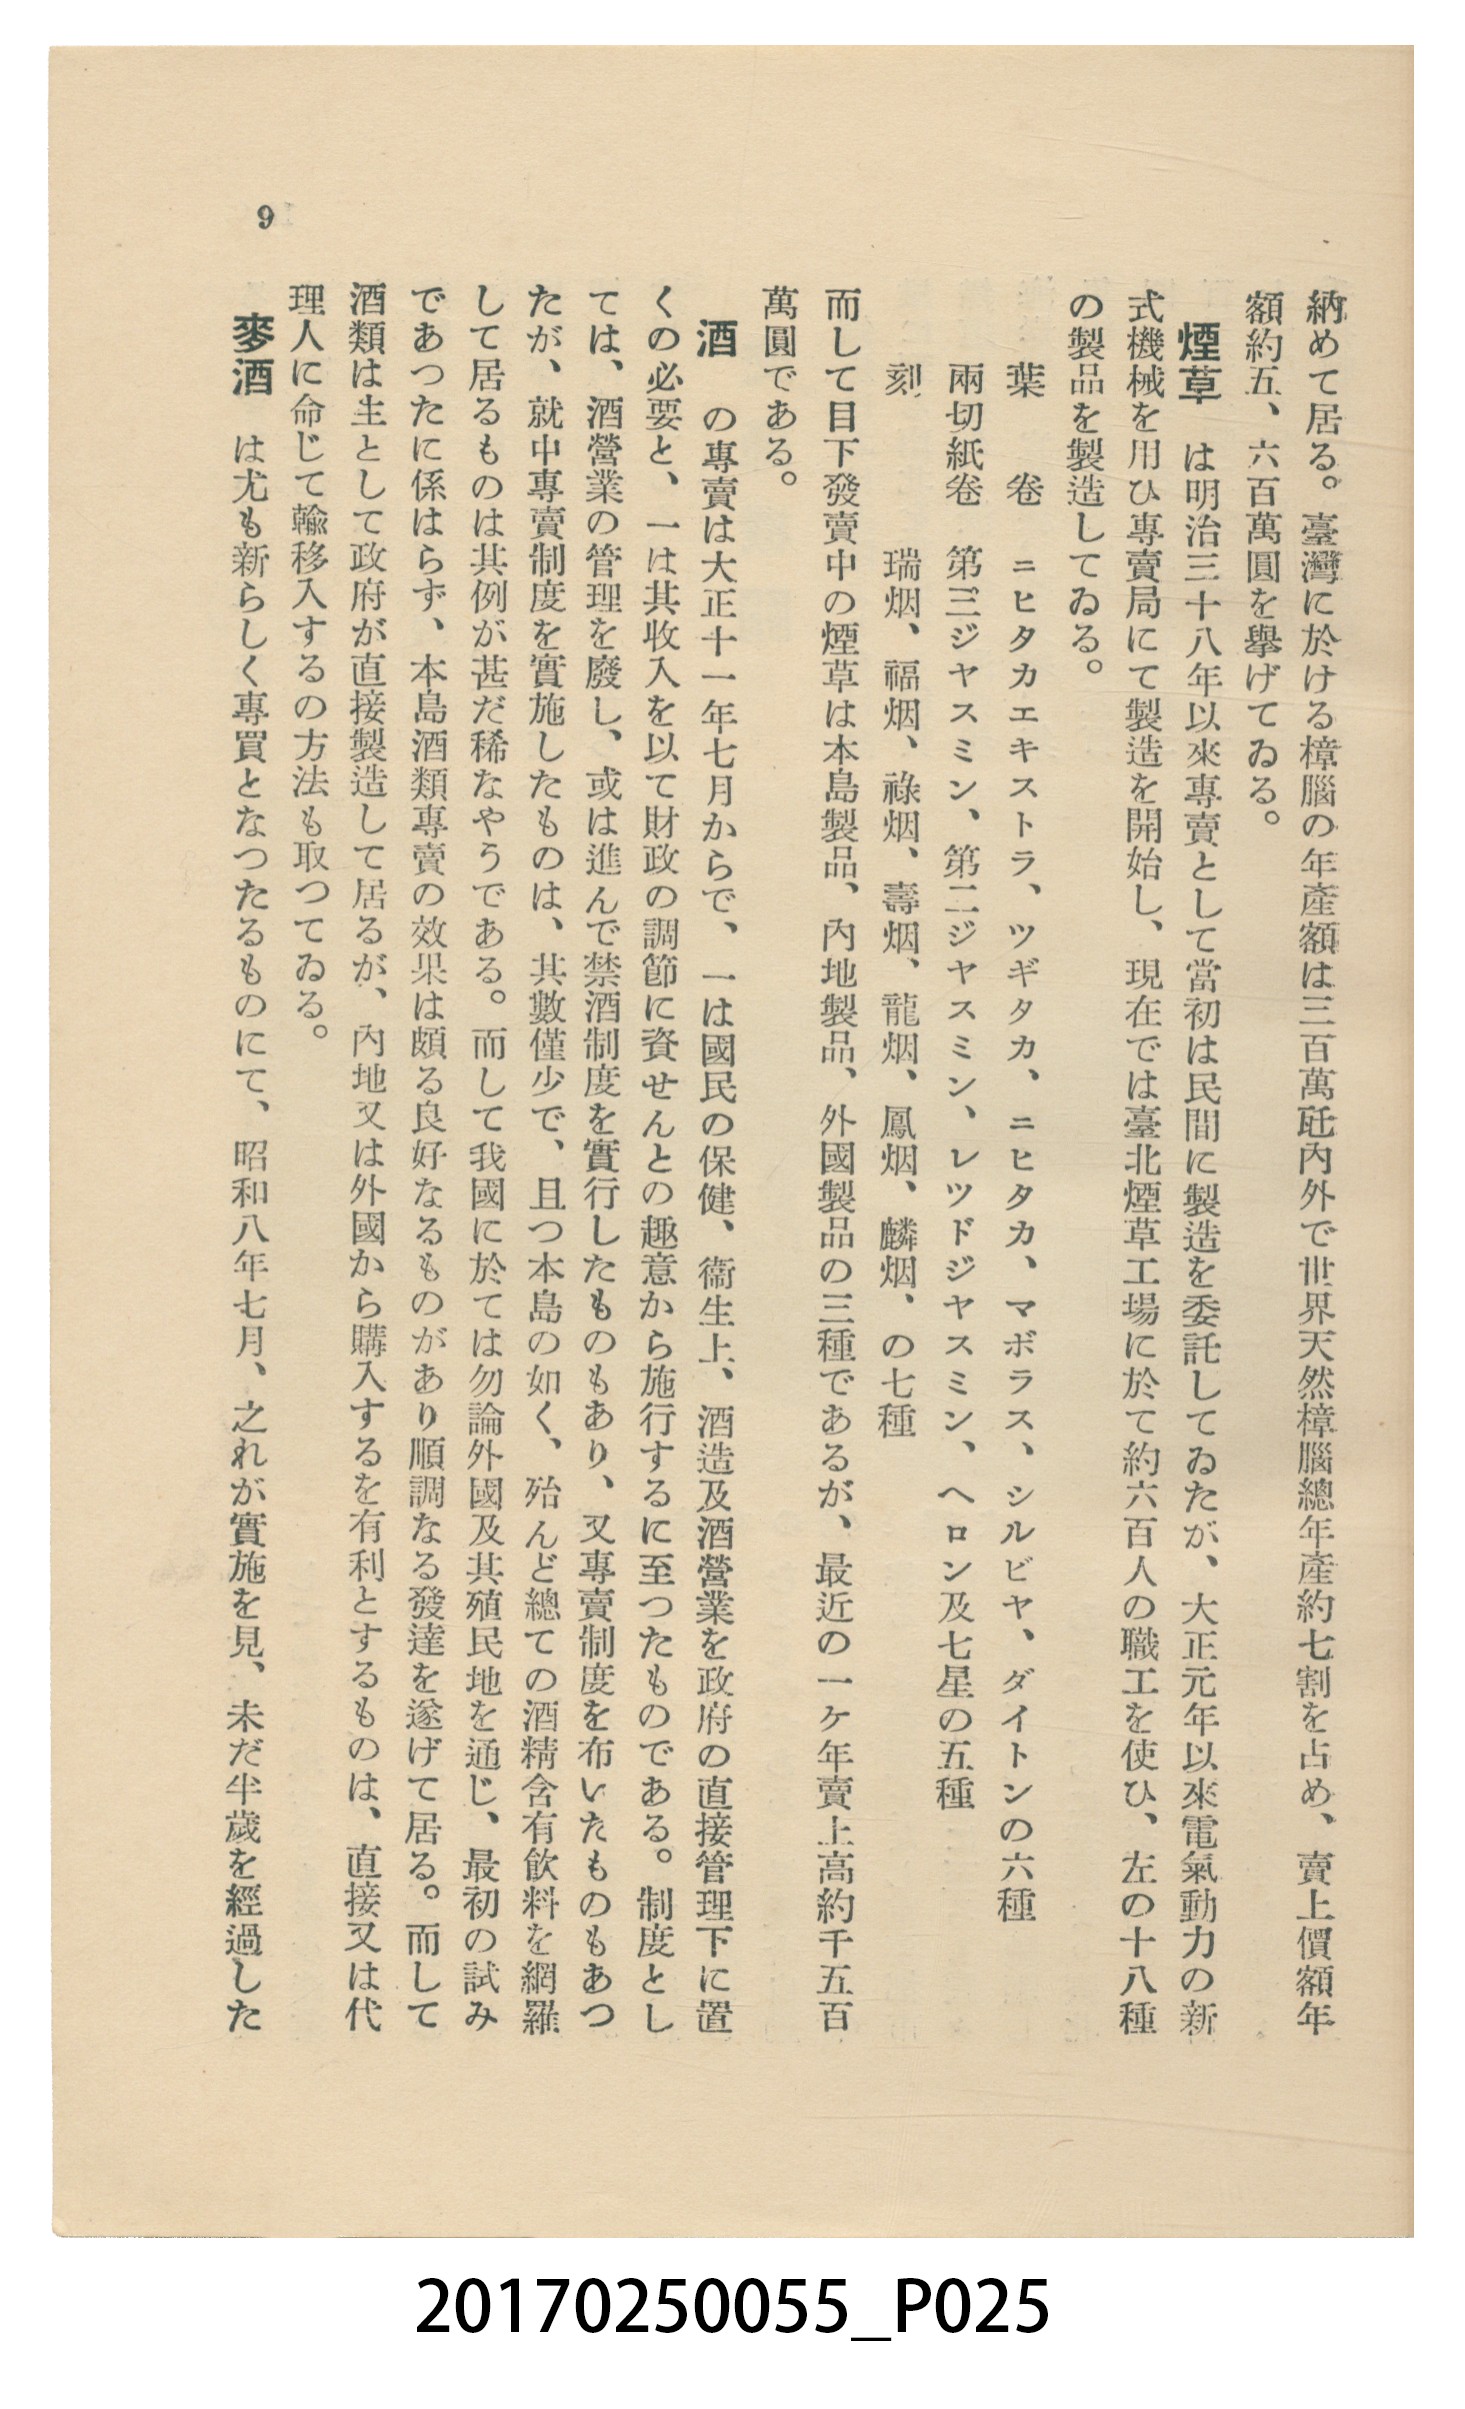 納めて居る。臺灣に於ける樟腦の年產額は三百萬瓩內外で世界天然樟腦總年產約七割を占め、賣上價額年
額約五、六百萬圓を擧げてゐる。
煙草 は明治三十八年以來專賣として當初は民間に製造を委託してゐたが、大正元年以來電氣動力の新
式機械を用ひ專賣局にて製造を開始し、現在では臺北煙草工場に於て約六百人の職工を使ひ、左の十八種
の製品を製造してゐる。
葉卷 ニヒタカエキストラ、ツギタカ、ニヒタカ、マボラス、シルビヤ、ダイトンの六種
兩切紙卷 第三ジヤスミン、第二ジヤスミン、レツドジヤスミン、ヘロン及七星の五種
刻 瑞烟、福烟、祿烟、壽烟、龍烟、鳳烟、麟烟、の七種
而して目下發賣中の煙草は本島製品、內地製品、外國製品の三種であるが、最近の一ケ年賣上高約千五百
萬圓である。
酒 の專賣は大正十一年七月からで、一は國民の保健、衞生上、酒造及酒營業を政府の直接管理下に置
くの必要と、一は其收入を以て財政の調節に資せんとの趣意から施行するに至つたものである。制度とし
ては、酒營業の管理を廢し、或は進んで禁酒制度を實行したものもあり、又專賣制度を布いたものもあつ
たが、就中專賣制度を實施したものは、其數僅少で、且つ本島の如く、殆んど總ての酒精含有飲料を網羅
して居るものは其例が甚だ稀なやうである。而して我國に於ては勿論外國及其殖民地を通じ、最初の試み
であつたに係はらず、本島酒類專賣の效果は頗る良好なるものがあり順調なる發達を遂げて居る。而して
酒類は生として政府が直接製造して居るが、內地又は外國から購入するを有利とするものは、直接又は代
理人に命じて輸移入するの方法も取つてゐる。
麥酒 は尤も新らしく專買となつたるものにて、昭和八年七月、之れが實施を見、未だ半歲を經過した
9
20170250055_P025